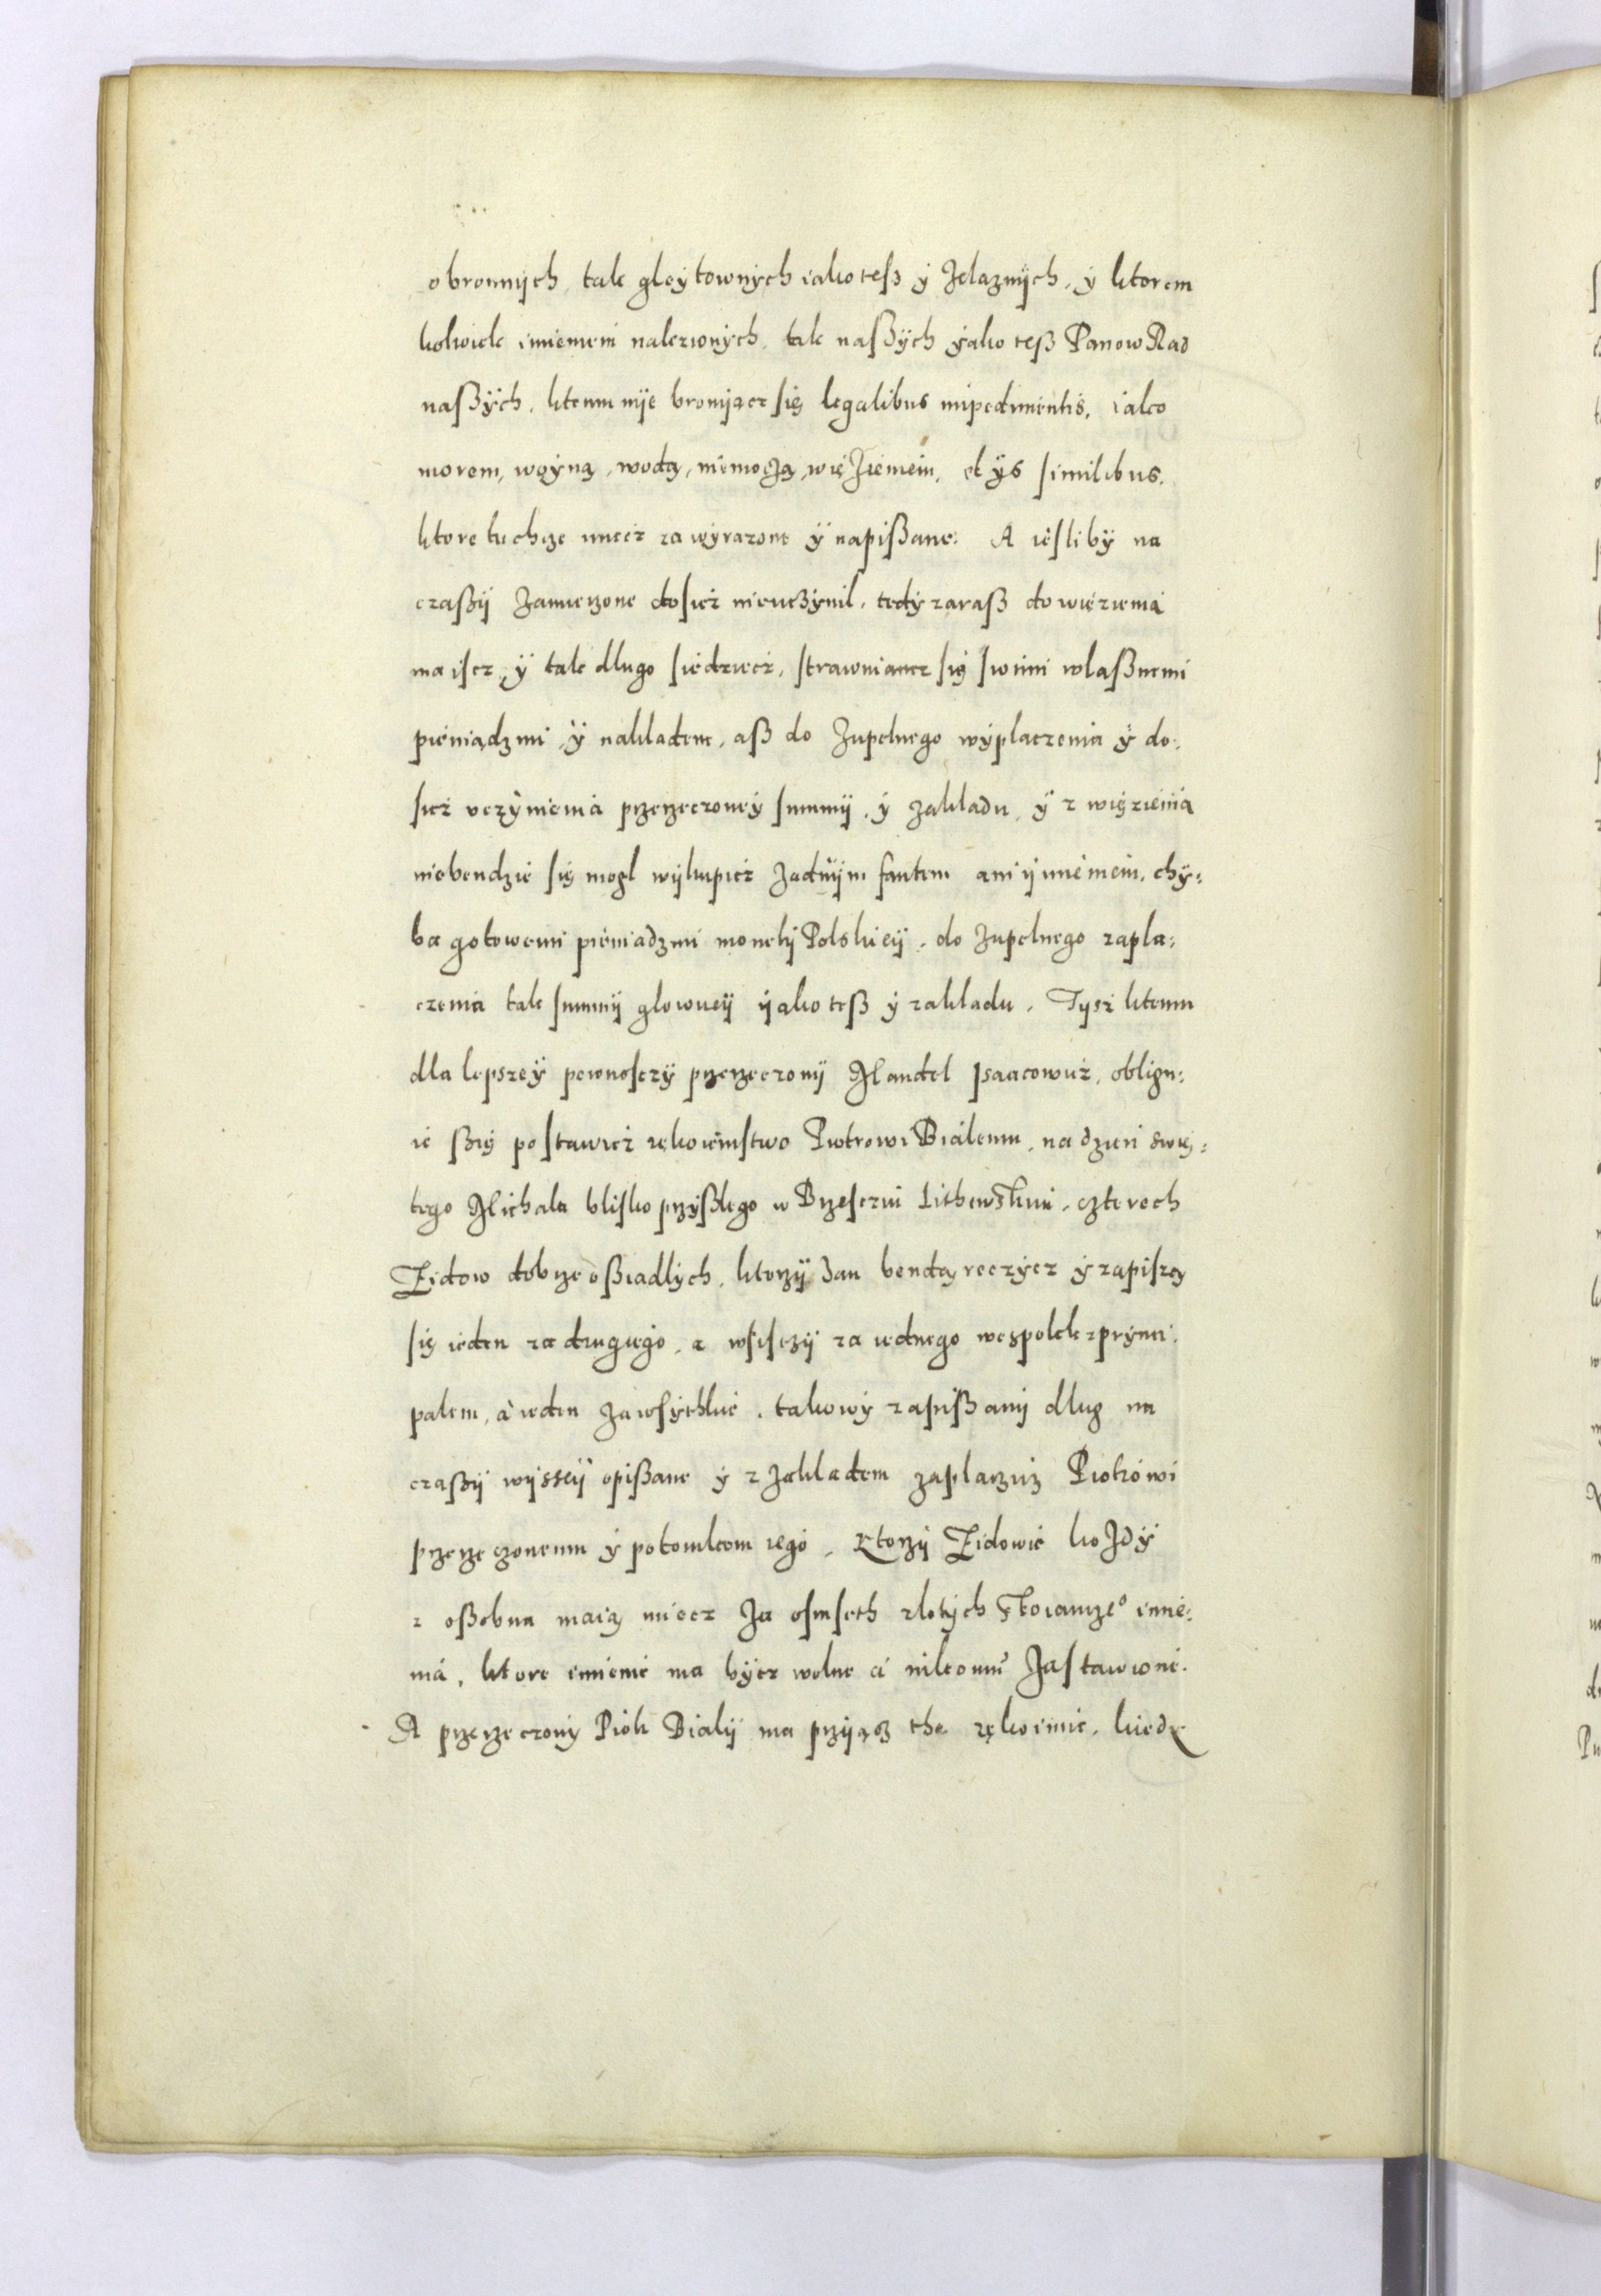 obronnych, tak gleytownych iako tesz y zelaznych, y ktorem
kolwiek imieniem nalezionych, tak naßych yako teß Panow Rad
naßych, ktemu nye broniącz się legalibus impedimentis, iako
morem, woyną, wodą, niemoczą, więzieniem, et ijs similibus,
ktore tu chcze miecz za wyrazone y napißane. A iesliby na
czaßy zamierzone dosicz nieuczynil, tedy zaraß do więzienia
ma iscz, y tak dlugo siedziecz, strawuiancz się swimi wlaßnemi
pieniądzmi y nakladem, aß do zupelnego wyplaczenia y do:
sicz uczynienia przerzeczoney summy, y zakladu, y z więzienia
niebendzie się mogl wykupicz zadnym fantem ani ymieniem, chy:
ba gotowemi pieniadzmi monety Polskiey, do zupelnego zapla:
czenia tak summy glowney yako teß y zakladu. Tysz ktemu
dla lepszey pewnosczy przerzeczony Mandel Isaacowicz, obligu:
ie ßię postawicz rękoiemstwo Piotrowi Bialemu, na dzien swię:
tego Michala blisko przyßlego w Brzesciu Lithewskim, czterech
Zidow dobrze oßiadlych, ktorzy zan bendą reczycz y zapiszą
się ieden za drugiego, a wsisczy za iednego wespolek z pryncz:
palem, a ieden za wsythkie, takowy zapißany dlug na
czaßy wyssey opißane y z zakladem zaplaczicz Piotrowi
przerzeczonemu y potomkom iego. Ktorzy Zidowie kozdy
z oßobna maią miecz za osmseth zlotych stoiancze° imie:
nia, ktore imienie ma bycz wolne a nikomu zastawione.
A przerzeczony Piotr Bialy ma przyącz the rękoimie, kiedy